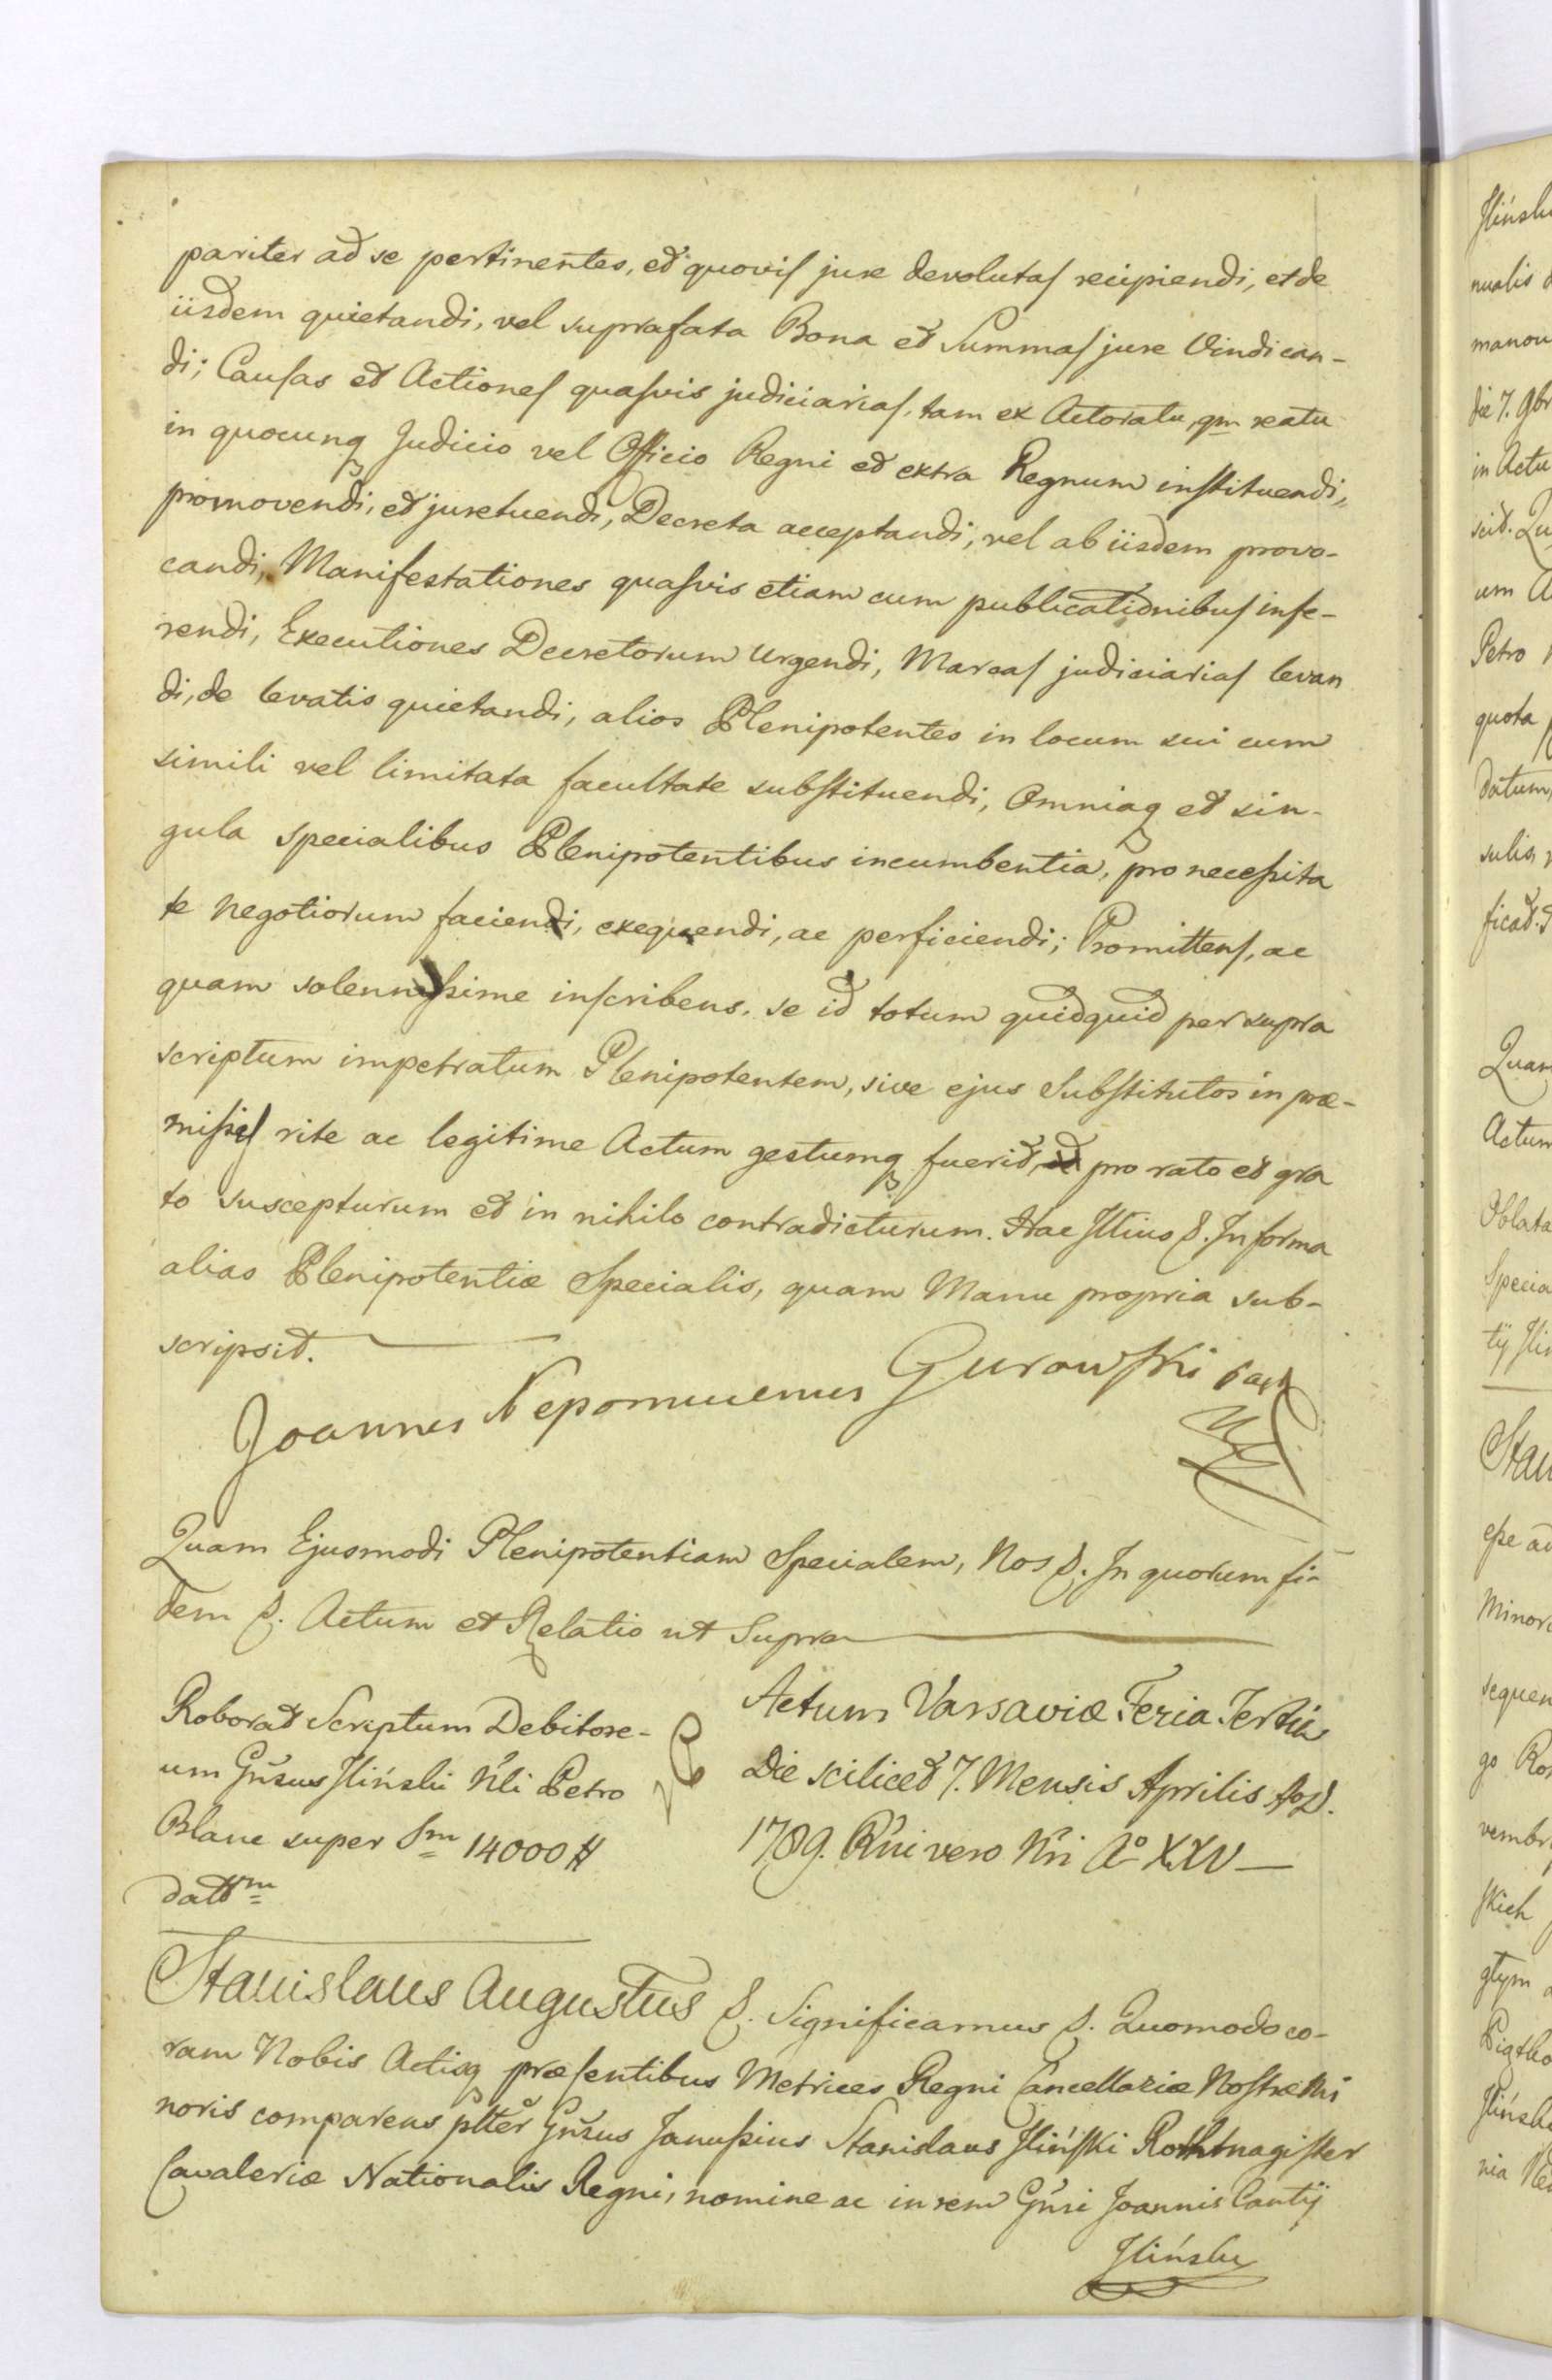 pariter ad se pertinentes, et quovis jure devolutas recipiendi, et de
iisdem quietandi, vel suprafata Bona et Summas jure Vindican-
di; Causas et Actiones quasvis judiciarias, tam ex Actoratu, qm reatu
in quocunq Judicio vel Officio Regni et extra Regnum instituendi,
promovendi, et juretuendi, Decreta acceptandi, vel ab iisdem provo-
candi, Manifestationes quasvis etiam cum publicationibus infe-
rendi, Executiones Decretorum Urgendi, Marcas judiciarias levan
di, de levatis quietandi, alios Plenipotentes in locum sui cum
simili vel limitata facultate substituendi, Omniaq et sin-
gula specialibus Plenipotentibus incumbentia, pro necessita
te negotiorum faciendi, exequendi, ac perficiendi; Promittens, ac
quam solennissime inscribens, se id totum quidquid per supra
scriptum impetratum Plenipotentem, sive ejus Substitutos in præ-
missis rite ac legitime Actum gestumq fuerit, pro rato et gra
to suscepturum et in nihilo contradicturum. Hac Illius &. In forma
alias Plenipotentiæ Specialis, quam Manu propria sub-
scripsit.
Joannes Nepomucenus Gurowski
Quam Ejusmodi Plenipotentiam Specialem, Nos &. In quorum fi-
dem &. Actum et Relatio ut Supra
Roborat Scriptum Debitore-
um Gnsus Iliński Nli Petro
Blanc super Sm 14000 #
dattm
Actum Varsaviæ Feria Tertia
Die scilicet 7. Mensis Aprilis AoD.
1789. Rni vero Nri Ao XXV
Stanislaus Augustus &. Significamus &. Quomodo co-
ram Nobis Actisq præsentibus Metrices Regni Cancellariæ Nostræ Mi
noris comparens plter Gnsus Janussius Stanislaus Iliński Rothmagister
Cavaleriæ Nationalis Regni, nomine ac in rem Gnsi Joannis Cantij
Iliński